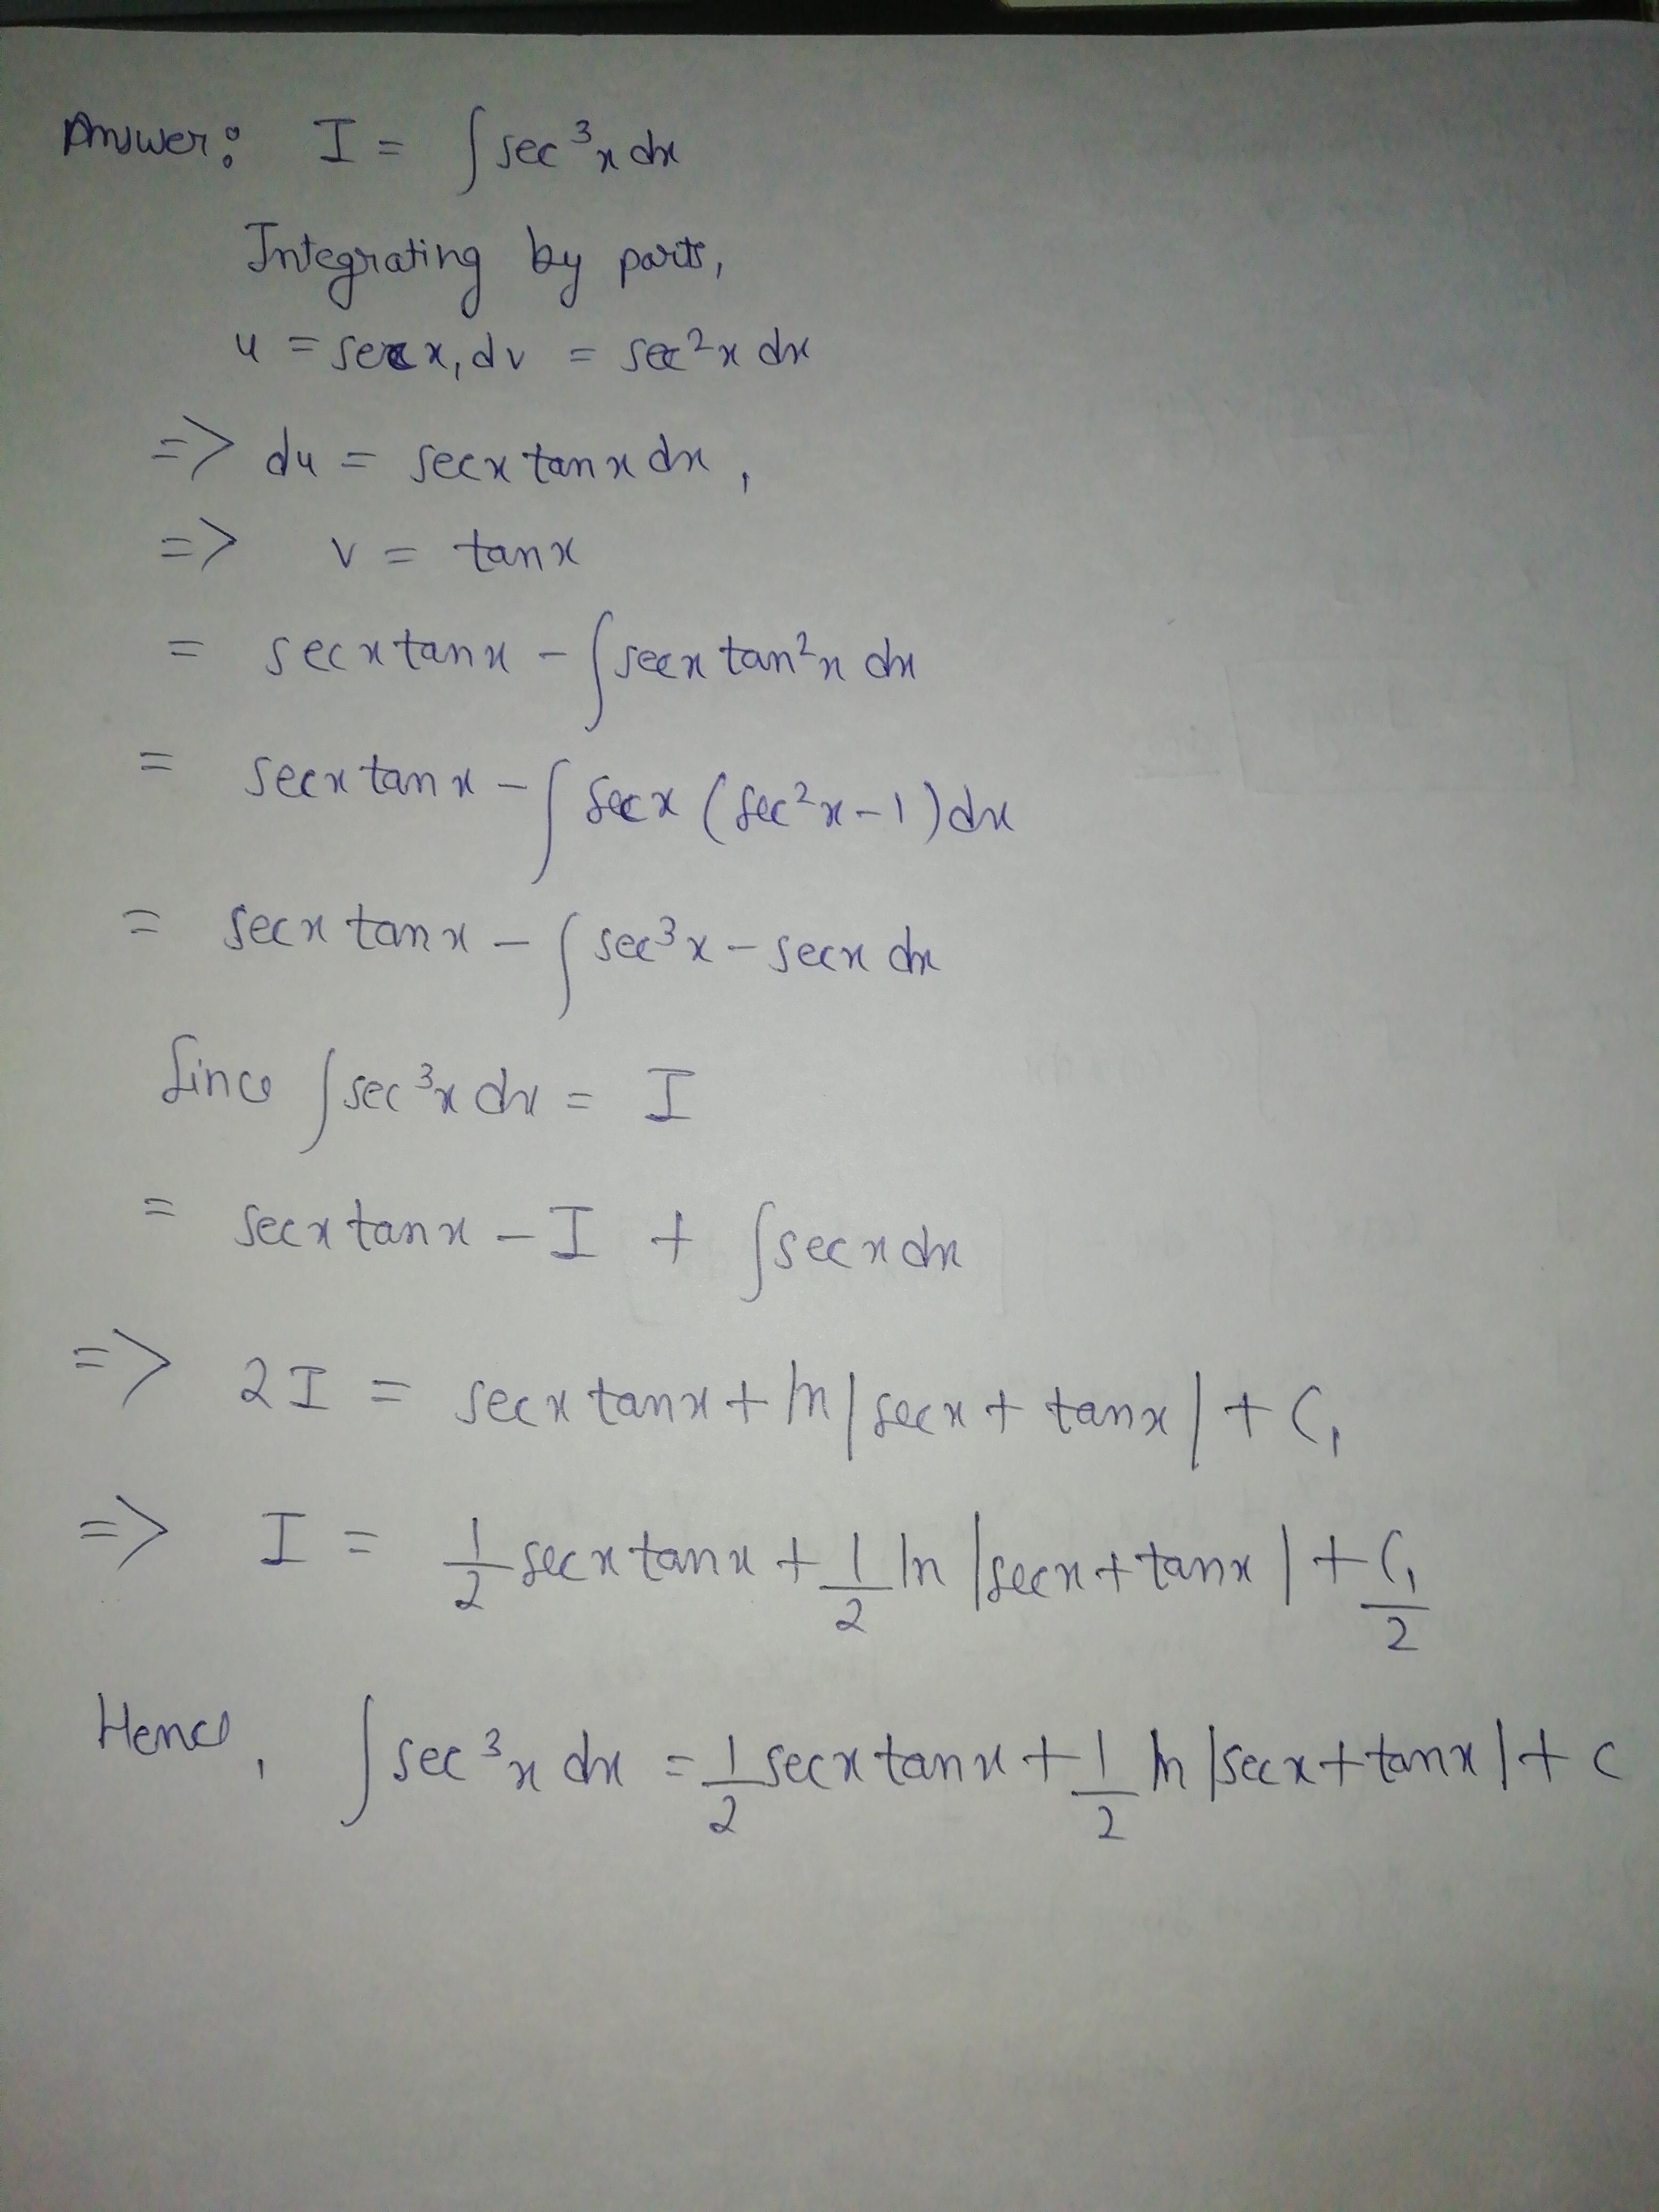 Answer: I = ∫ sec³x dx
Integrating by parts,
u = secx, dv = sec²x dx
=> du = secx tanx dx,
=> v = tanx
= secx tanx - ∫ secx tan²x dx
= secx tanx - ∫ secx (sec²x - 1) dx
= secx tanx - ∫ sec³x - secx dx
Since ∫ sec³x dx = I
= secx tanx - I + ∫ secx dx
=> 2I = secx tanx + ln |secx + tanx| + C₁
=> I = 1/2 secx tanx + 1/2 ln |secx + tanx| + C₁/2
Hence, ∫ sec³x dx = 1/2 secx tanx + 1/2 ln |secx + tanx| + c